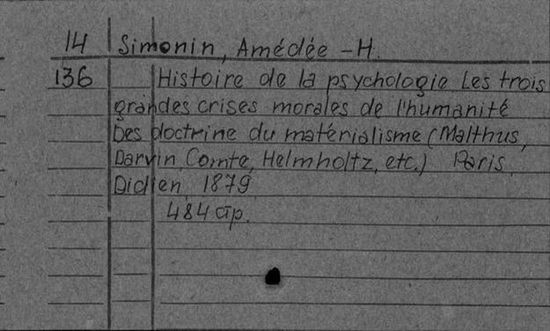 14 Simonin, Amédée -H.
136 Histoire de la psychologie Les trois
grandes crises morales de l'humanité
Des doctrine du matérialisme (Malthus,
Darvin, Comte, Helmholtz, etc.) Paris,
Didien, 1879
484 стр.